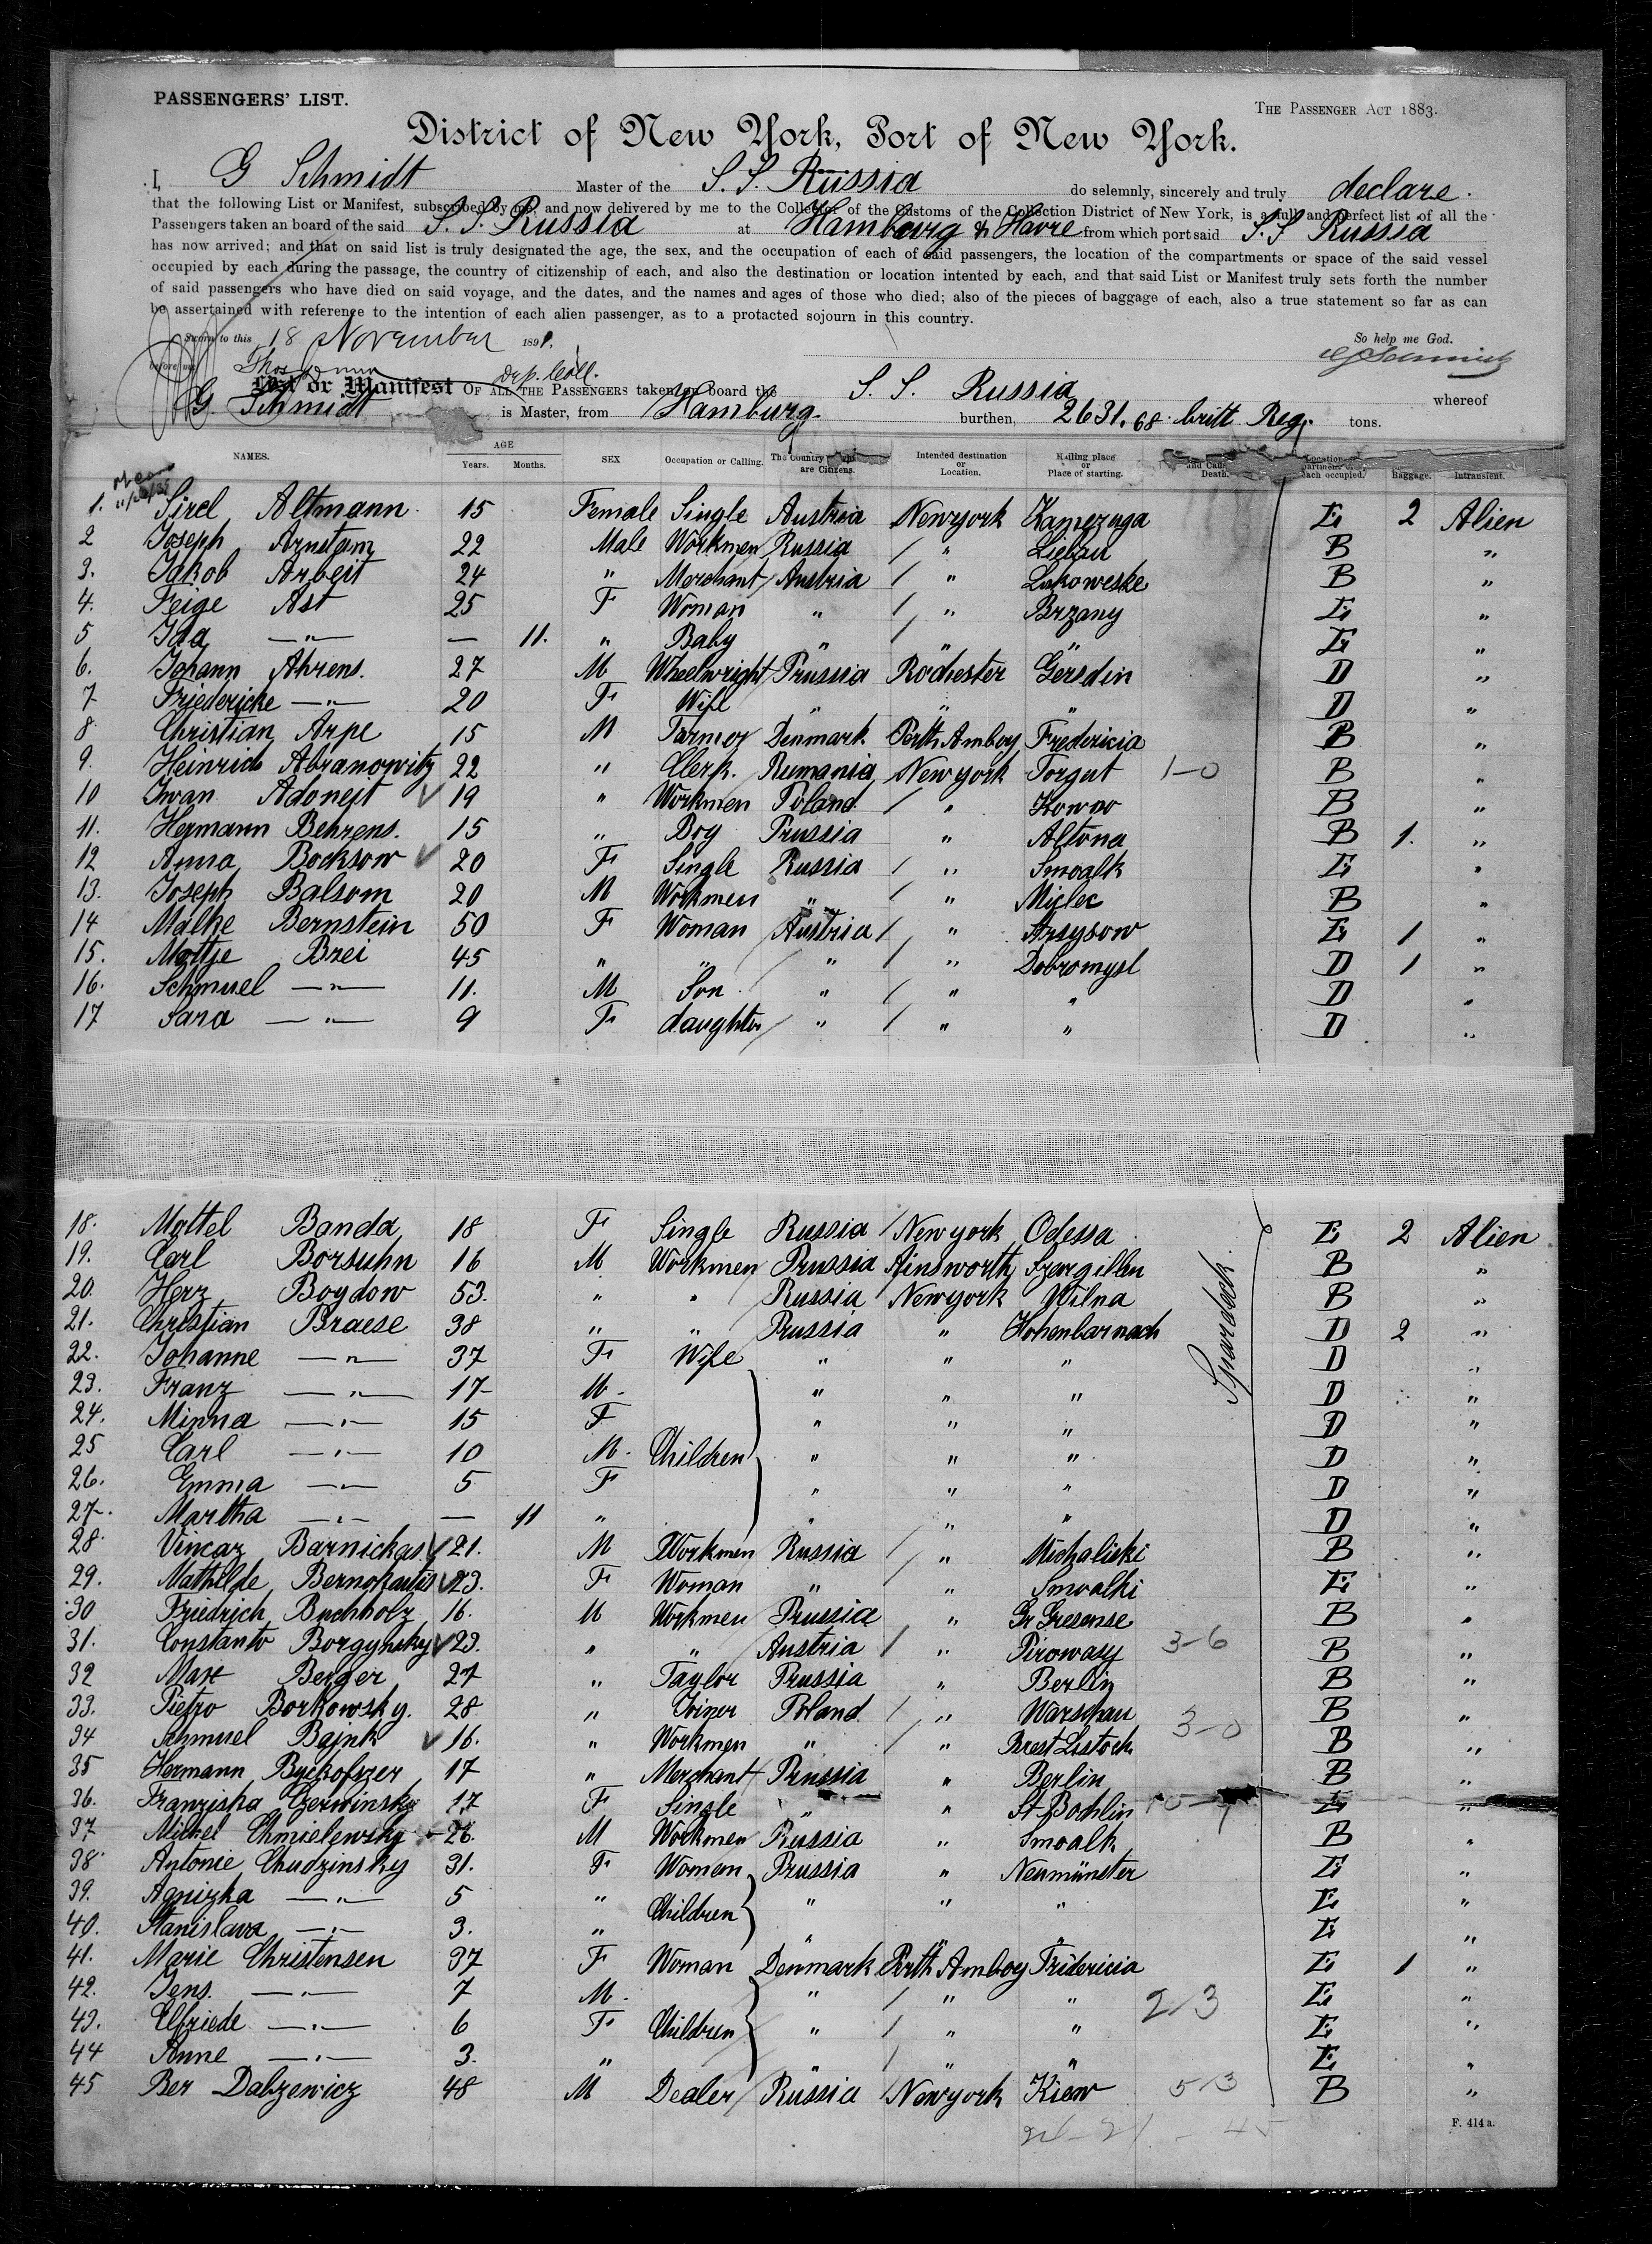 PASSENGERS' LIST.
THE PASSENGER ACT 1883.
District of New York, Port of New York.
I, G Schmidt Master of the S. S. Russia do selemnly, sincerely and truly declare.
that the following List or Manifest, subscribed by me, and now delivered by me to the Collector of the Customs of the Collection District of New York, is a full and perfect list of all the
Passengers taken an board of the said S. S. Russia at Hamburg & Havre from which port said S. S Russia
has now arrived; and that on said list is truly designated the age, the sex, and the occupation of each of said passengers, the location of the compartments or space of the said vessel
occupied by each during the passage, the country of citizenship of each, and also the destination or location intented by each, and that said List or Manifest truly sets forth the number
of said passengers who have died on said voyage, and the dates, and the names and ages of those who died; also of the pieces of baggage of each, also a true statement so far as can
be assertained with reference to the intention of each alien passenger, as to a protacted sojourn in this country.
Sworn to this 18 November 1891. So help me God.
before me Thos Dunn Dep. Coll. G Schmidt
List or Manifest OF ALL THE PASSENGERS taken on board the S. S. Russia whereof
G. Schmidt is Master, from Hamburg. burthen, 2631.68 britt Reg. tons.
NAMES. AGE Years. Months. SEX Occupation or Calling. The Country are Citizens. Intended destination or Location. Hailing place or Place of starting. and Death. Location partment each occupied. Baggage. Intransient.
1. Sirel Altmann 15 Female Single Austria Newyork Kamezuga E 2 Alien
2 Joseph Arnstam 22 Male Workmen Russia " Liebau B "
3. Jakob Arbeit 24 " Merchant Austria " Lukoweske B "
4. Feige Ast 25 F Woman " " Brzany E "
5 Ida —"— — 11. " Baby " " " E "
6. Johann Ahrens. 27 M Wheelwright Prussia Rochester Gersdin D "
7 Friedericke —"— 20 F Wife " " " D "
8 Christian Arpe 15 M Farmer Denmark Perth Amboy Fredericia B "
9. Heinrich Abranowitz 22 " Clerk. Rumania Newyork Torgut 1-0 B "
10 Iwan Adoneit 19 " Workmen Poland " Kowno B "
11. Hermann Behrens. 15 " Boy Prussia " Altona B 1. "
12 Anna Bocksow 20 F Single Russia " Smoalk E "
13. Joseph Balsom 20 M Workmen " " Mielec B "
14 Malke Bernstein 50 F Woman Austria " Arsysow E 1 "
15. Mottje Brei 45 " " " " Dobromysl D 1 "
16. Schmuel —"— 11. M Son " " " D "
17 Sara —"— 9 F daughter " " " D "
18. Mottel Banda 18 F Single Russia Newyork Odessa E 2 Alien
19. Carl Borsuhn 16 M Workmen Prussia Ainsworth Szargillen B "
20. Herz Boydow 53. " " Russia Newyork Wilna B "
21. Christian Braese 38 " " Prussia " Hohenbarnach D 2 "
22. Johanne —"— 37 F Wife " " " D "
23. Franz —"— 17 M. " " " D "
24. Minna —"— 15 F " " " D "
25 Carl —"— 10 M. Children " " " D "
26. Emma —"— 5 F " " " D "
27. Martha —"— — 11 " " " " D "
28. Vincaz Barnickas 21. M Workmen Russia " Michaliski B "
29. Mathilde Bernokaitis 23. F Woman " " Smoalki E "
30 Friedrich Buchholz 16. M Workmen Prussia " Gr Gresense B "
31. Constanto Borgynsky 23. " " Austria " Pirowasy 3-6 B "
32 Max Berger 27 " Taylor Prussia " Berlin B "
33. Pietro Borkowsky. 28 " Joiner Poland " Warschau B "
34 Schmuel Bajnk 16. " Workmen " " Brest Listock 3-0 B "
35 Hermann Byckofszer 17 " Merchant Prussia " Berlin B "
36. Franziska Czerwinsky 17 F Single " " St. Bochlin E "
37 Michel Chmielewsky 26. M Workmen Russia " Smoalk B "
38 Antonie Chudzinsky 31. F Woman Prussia " Neumünster E "
39. Agnizka —"— 5 " Children " " " E "
40. Stanislava —"— 3. " " " " E "
41. Marie Christensen 37 F Woman Denmark Perth Amboy Fridericia E 1 "
42. Jens. —"— 7 M. " " " 2/3 E "
43. Elfriede —"— 6 F Children " " " E "
44 Anne —"— 3. " " " " E "
45 Ber Dabzewicz 48 M Dealer Russia Newyork Kiew 5/3 B "
Spardeck
F. 414 a.